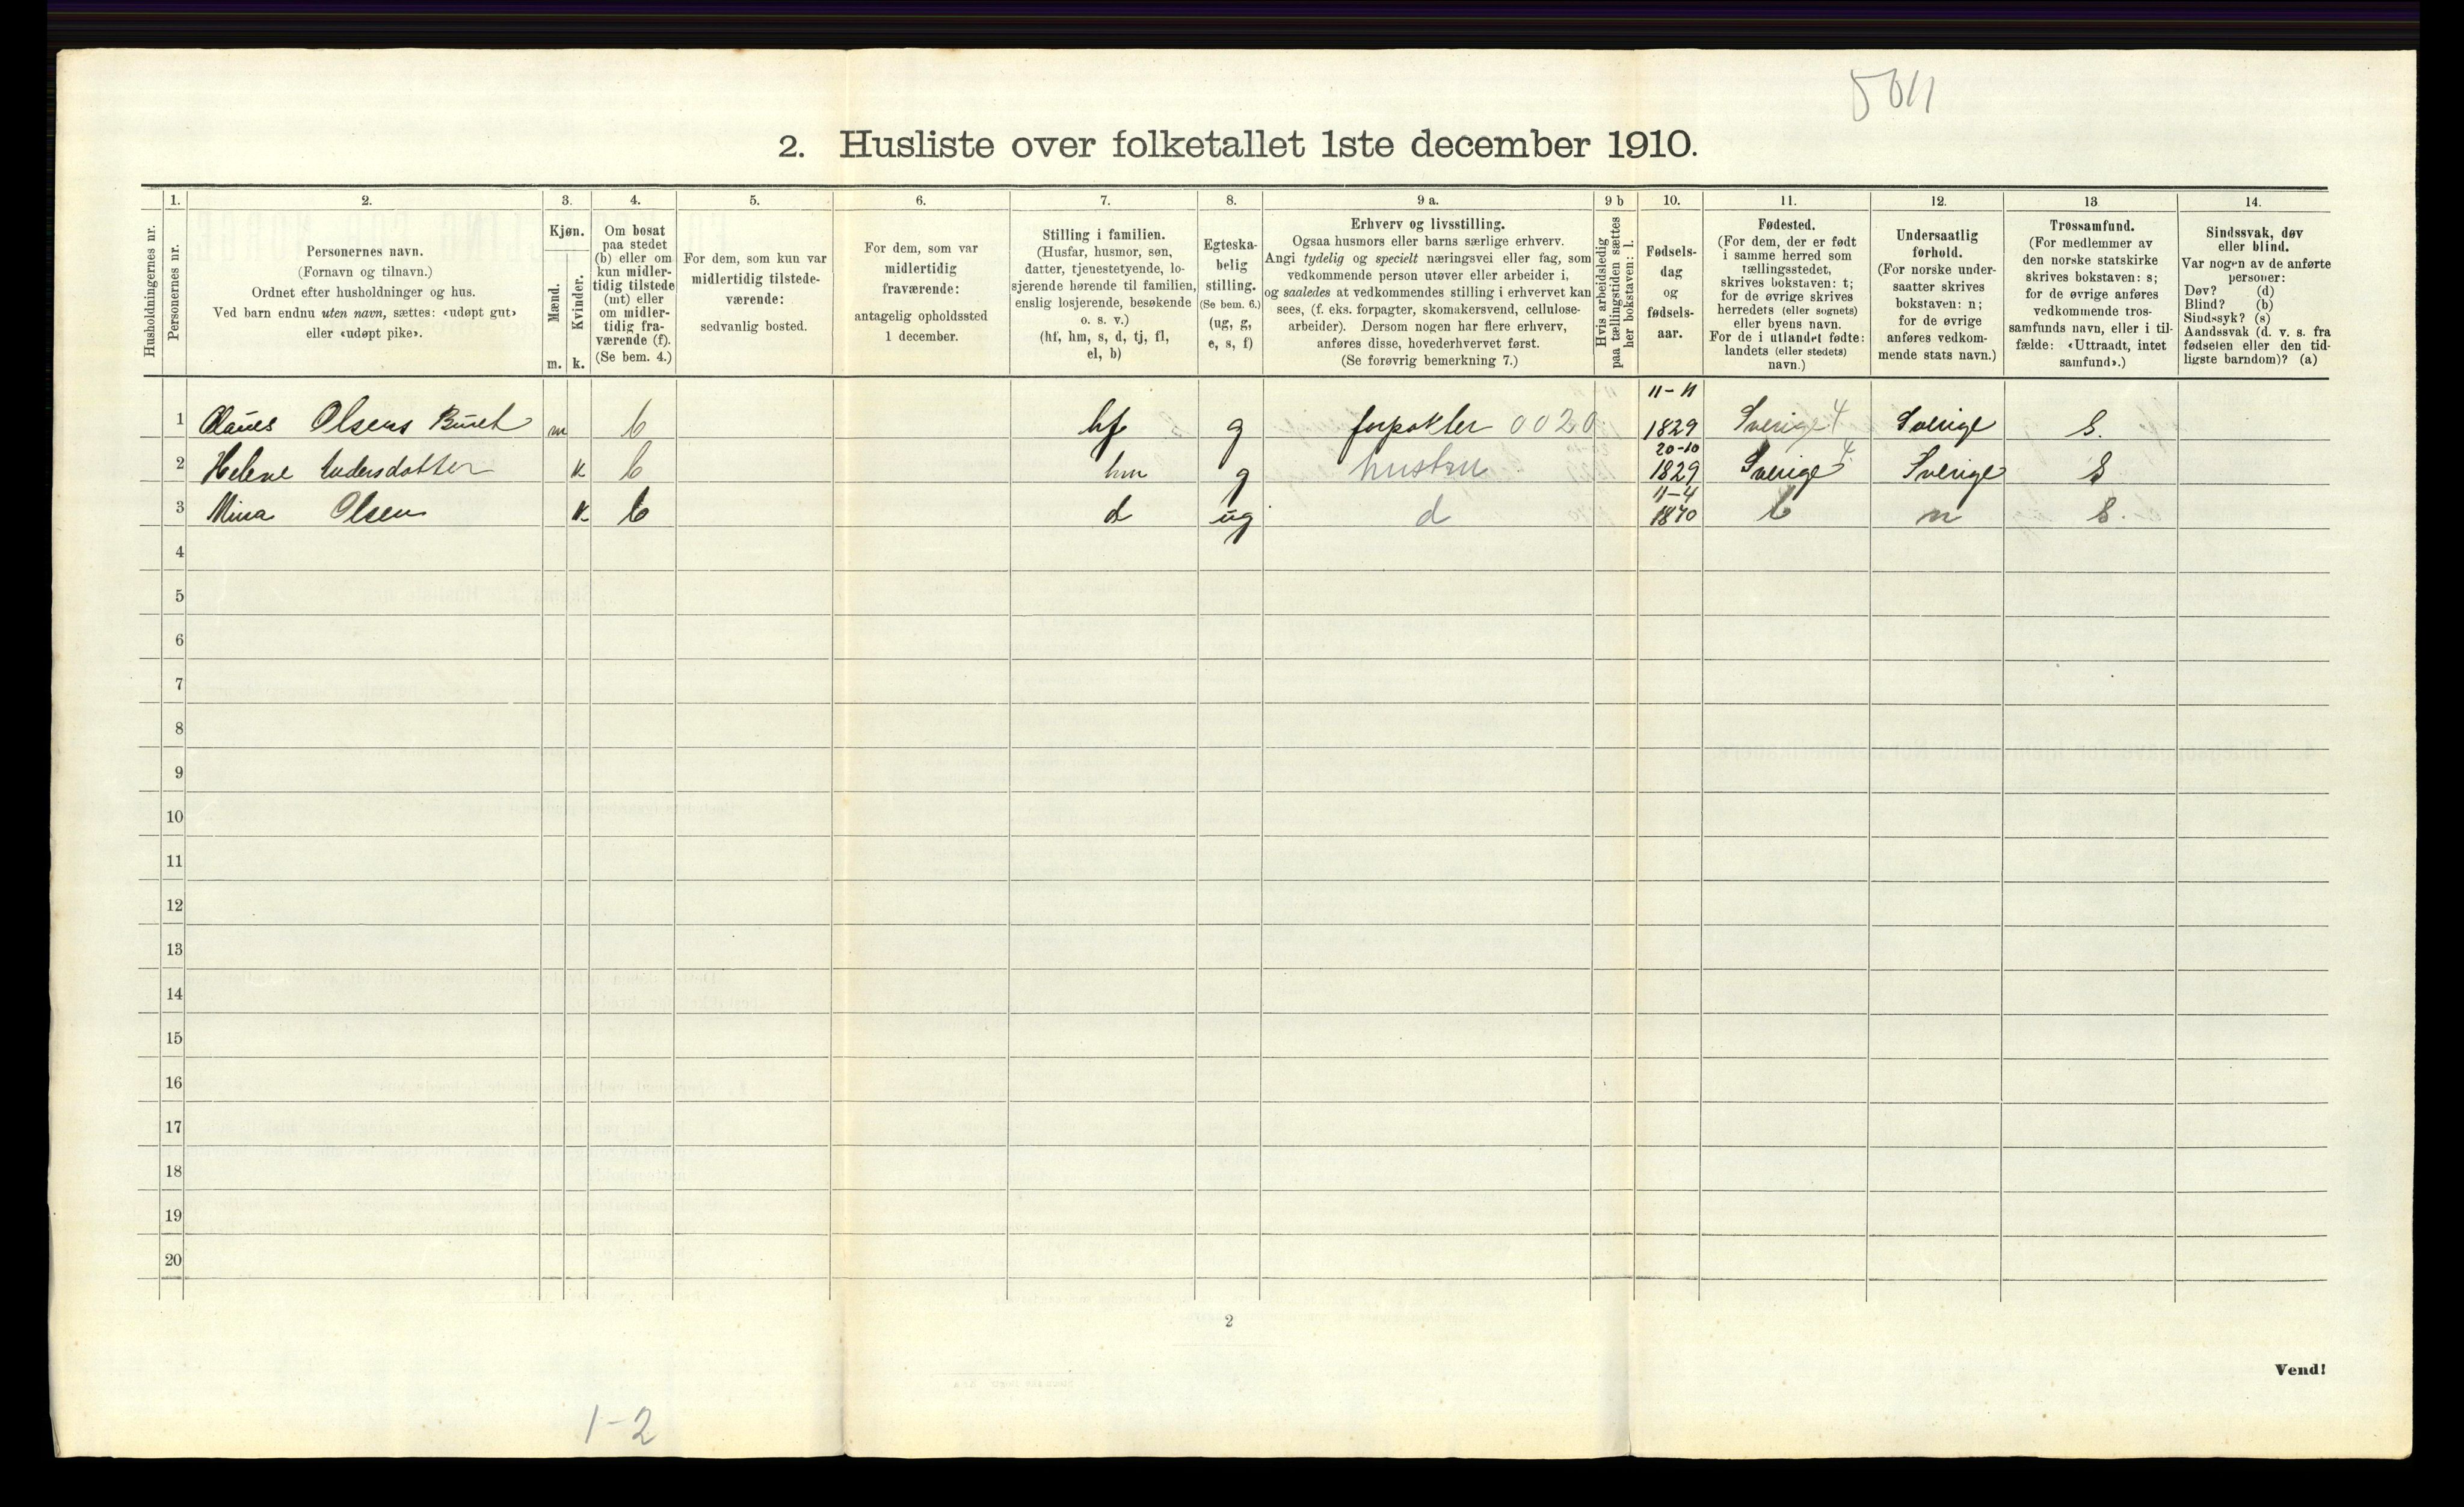 5011
2. Husliste over folketallet 1ste december 1910.
1. 2. 3. 4. 5. 6. 7. 8. 9 a. 9 b 10. 11. 12. 13 14.
Husholdningernes nr.
Personernes nr.
Personernes navn.
(Fornavn og tilnavn.)
Ordnet efter husholdninger og hus.
Ved barn endnu uten navn, sættes: «udøpt gut»
eller «udøpt pike».
Kjøn.
Mænd.
Kvinder.
m. k.
Om bosat
paa stedet
(b) eller om
kun midler-
tidig tilstede
(mt) eller
om midler-
tidig fra-
værende (f).
(Se bem. 4.)
For dem, som kun var
midlertidig tilstede-
værende:
sedvanlig bosted.
For dem, som var
midlertidig
fraværende:
antagelig opholdssted
1 december.
Stilling i familien.
(Husfar, husmor, søn,
datter, tjenestetyende, lo-
sjerende hørende til familien,
enslig losjerende, besøkende
o. s. v.)
(hf, hm, s, d, tj, fl,
el, b)
Egteska-
belig
stilling.
(Se bem. 6.)
(ug, g,
e, s, f)
Erhverv og livsstilling.
Ogsaa husmors eller barns særlige erhverv.
Angi tydelig og specielt næringsvei eller fag, som
vedkommende person utøver eller arbeider i,
og saaledes at vedkommendes stilling i erhvervet kan
sees, (f. eks. forpagter, skomakersvend, cellulose-
arbeider). Dersom nogen har flere erhverv,
anføres disse, hovederhvervet først.
(Se forøvrig bemerkning 7.)
Hvis arbeidsledig
paa tællingstiden sættes
her bokstaven: l.
Fødsels-
dag
og
fødsels-
aar.
Fødested.
(For dem, der er født
i samme herred som
tællingsstedet,
skrives bokstaven: t;
for de øvrige skrives
herredets (eller sognets)
eller byens navn.
For de i utlandet fødte:
landets (eller stedets)
navn.)
Undersaatlig
forhold.
(For norske under-
saatter skrives
bokstaven: n;
for de øvrige
anføres vedkom-
mende stats navn.)
Trossamfund.
(For medlemmer av
den norske statskirke
skrives bokstaven: s;
for de øvrige anføres
vedkommende tros-
samfunds navn, eller i til-
fælde: «Uttraadt, intet
samfund».)
Sindssvak, døv
eller blind.
Var nogen av de anførte
personer:
Døv? (d)
Blind? (b)
Sindssyk? (s)
Aandssvak (d. v. s. fra
fødselen eller den tid-
ligste barndom)? (a)
11-11
1 Olsens m b hf g forpakter 0020 1829 Sverige 4 Sverige S.
20-10
2 Helene Andersdatter k b hm g hustru 1829 Sverige 4 Sverige S
11-4
3 Mina Olsen k b d ug d 1870 n S.
4
5
6
7
8
9
10
11
12
13
14
15
16
17
18
19
20
2
Vend!
1-2